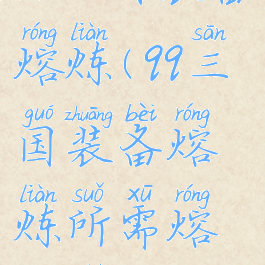 róng liàn sān
熔炼(99三
guó zhuāng bèi róng
国装备熔
liàn suǒ xū róng
炼所需熔